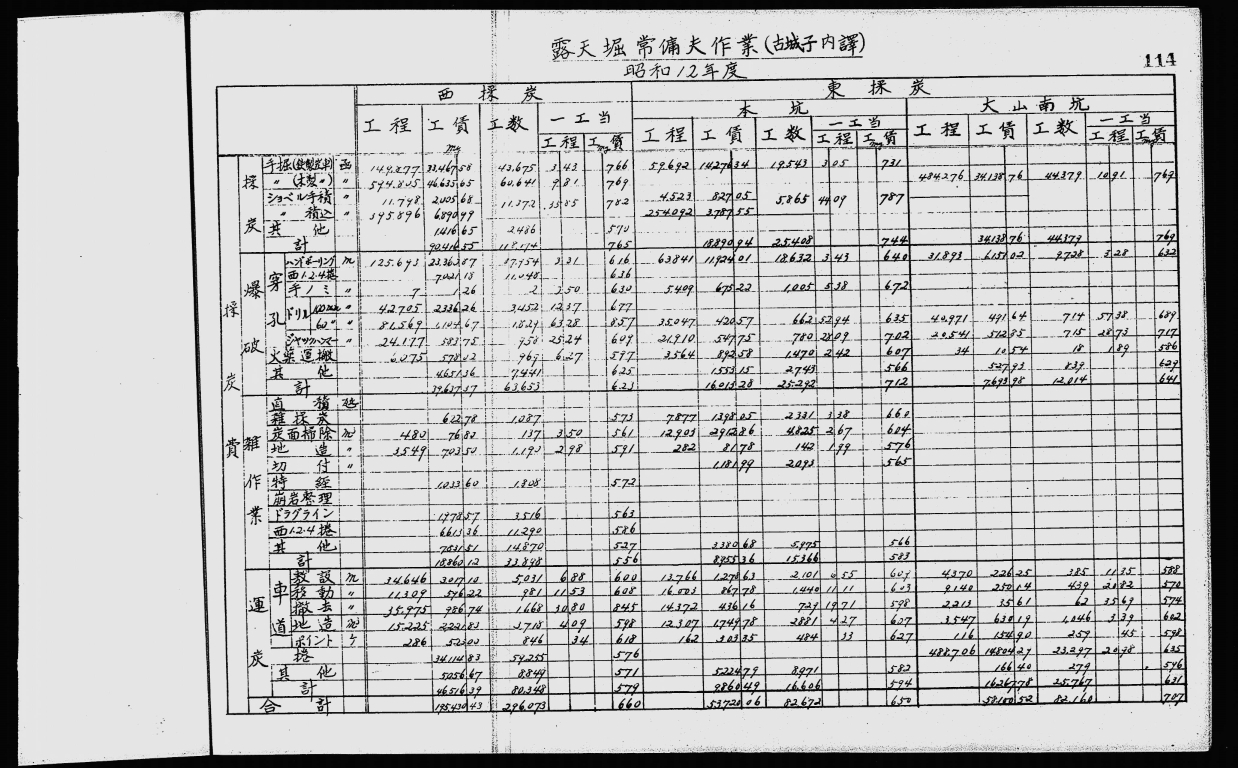 露天堀常傭夫作業(古城子内譯)
114
昭和12年度
西採炭 東採炭
本坑 大山南坑
工程 工賃 工数 一工当 工程 工賃 工数 一工当 工程 工賃 工数 一工当
工程 工賃 工程 工賃 工程 工賃
採炭費
採炭
手堀 函 43,675 3.43 766 59,692 14,276.34 19,543 3.05 731
〃 (木製〃) 〃 594,805 46,635.65 60,641 9.81 769 484,276 34,138.76 44,379 10.91 769
ショベル手積 〃 11,798 2,005.68 782 4,523 827.05 5,865 44.09 787
〃 積込 〃 395,896 6,890.49 254,092 3,787.55
其他 1,416.65 2,486 570
計 90,416.55 765 18,890.94 25,408 744 34,138.76 44,379 769
爆破
穿孔
ハンドボーリング m 125,693 23,363.87 37,954 3.31 616 63,841 11,924.01 18,632 3.43 640 31,893 6,151.02 9,728 3.28 632
西1.2.4捲 7,021.13 11,048 636
手ノミ 〃 7 1.26 2 3.50 630 5,409 675.22 1,005 5.38 672
ドリル 〃 42,705 2,336.26 3,452 12.37 677
60〃 〃 81,569 1,104.67 857 35,047 420.57 662 52.94 635 40,971 491.64 714 57.38 689
ジャックハンマー 〃 24,177 583.75 958 25.24 609 21,910 547.75 780 28.09 702 20,541 512.85 715 28.73 717
火薬運搬 6,075 578.02 969 6.27 597 3,564 892.58 1,470 2.42 607 34 10.54 18 1.89 586
其他 4,651.36 7,441 625 1,553.15 2,743 566 527.93 839 629
計 39,637.37 63,653 623 16,013.28 25,292 712 7,693.98 12,014 641
雑作業
直積
雑採炭 622.78 1,087 573 7,877 1,398.05 2,331 3.38 660
炭面掃除 m 480 76.80 137 3.50 561 12,903 2,912.86 4,825 2.67 604
地造 〃 3,549 703.50 1,190 2.98 591 282 81.78 142 1.99 576
切付 〃 1,181.99 2,093 565
特経 1,033.60 1,808 572
崩岩整理
ドラグライン 1,978.57 3,516 563
西1.2.4捲 6,613.36 11,290 586
其他 7,831.51 14,870 527 3,380.68 5,975 566
計 18,860.12 33,898 556 8,955.36 15,366 583
運炭
車道
敷設 m 34,646 3,017.10 5,031 6.88 600 13,766 1,278.63 2,101 6.55 609 4,370 226.25 385 11.35 588
移動 〃 11,309 596.22 981 11.53 608 16,003 867.78 1,440 11.11 603 9,140 250.14 439 20.82 570
撤去 〃 35,975 986.74 1,168 30.80 845 14,372 436.16 729 19.71 598 2,213 35.61 62 35.69 574
地造 〃 15,225 2,221.83 3,715 4.09 598 12,307 1,749.78 2,881 4.27 607 3,547 630.19 1,046 3.39 602
ポイント ケ 286 523.00 846 .34 618 162 303.35 484 .33 627 116 154.90 259 .45 598
捲 34,114.83 59,255 576 488,706 14,804.27 23,297 20.98 635
其他 5,056.67 8,849 571 5,224.79 8,971 582 166.40 279 596
計 46,516.39 80,348 579 9,860.49 16,606 594 16,267.78 25,767 631
合計 195,430.43 296,073 660 53,720.06 82,672 650 58,100.52 82,160 707